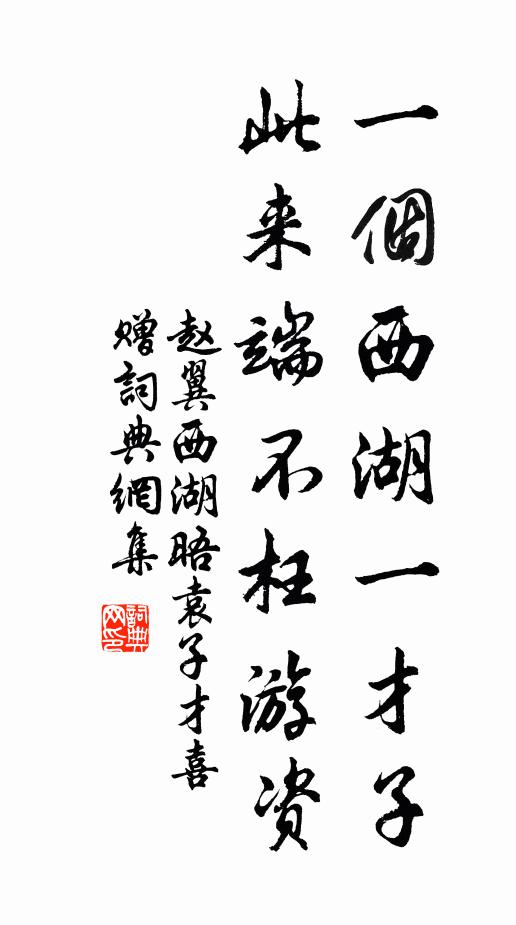 一個西湖一才子
此来端不枉游资
赵翼西湖晤袁子才喜
赠詞典網集
詞典
网印